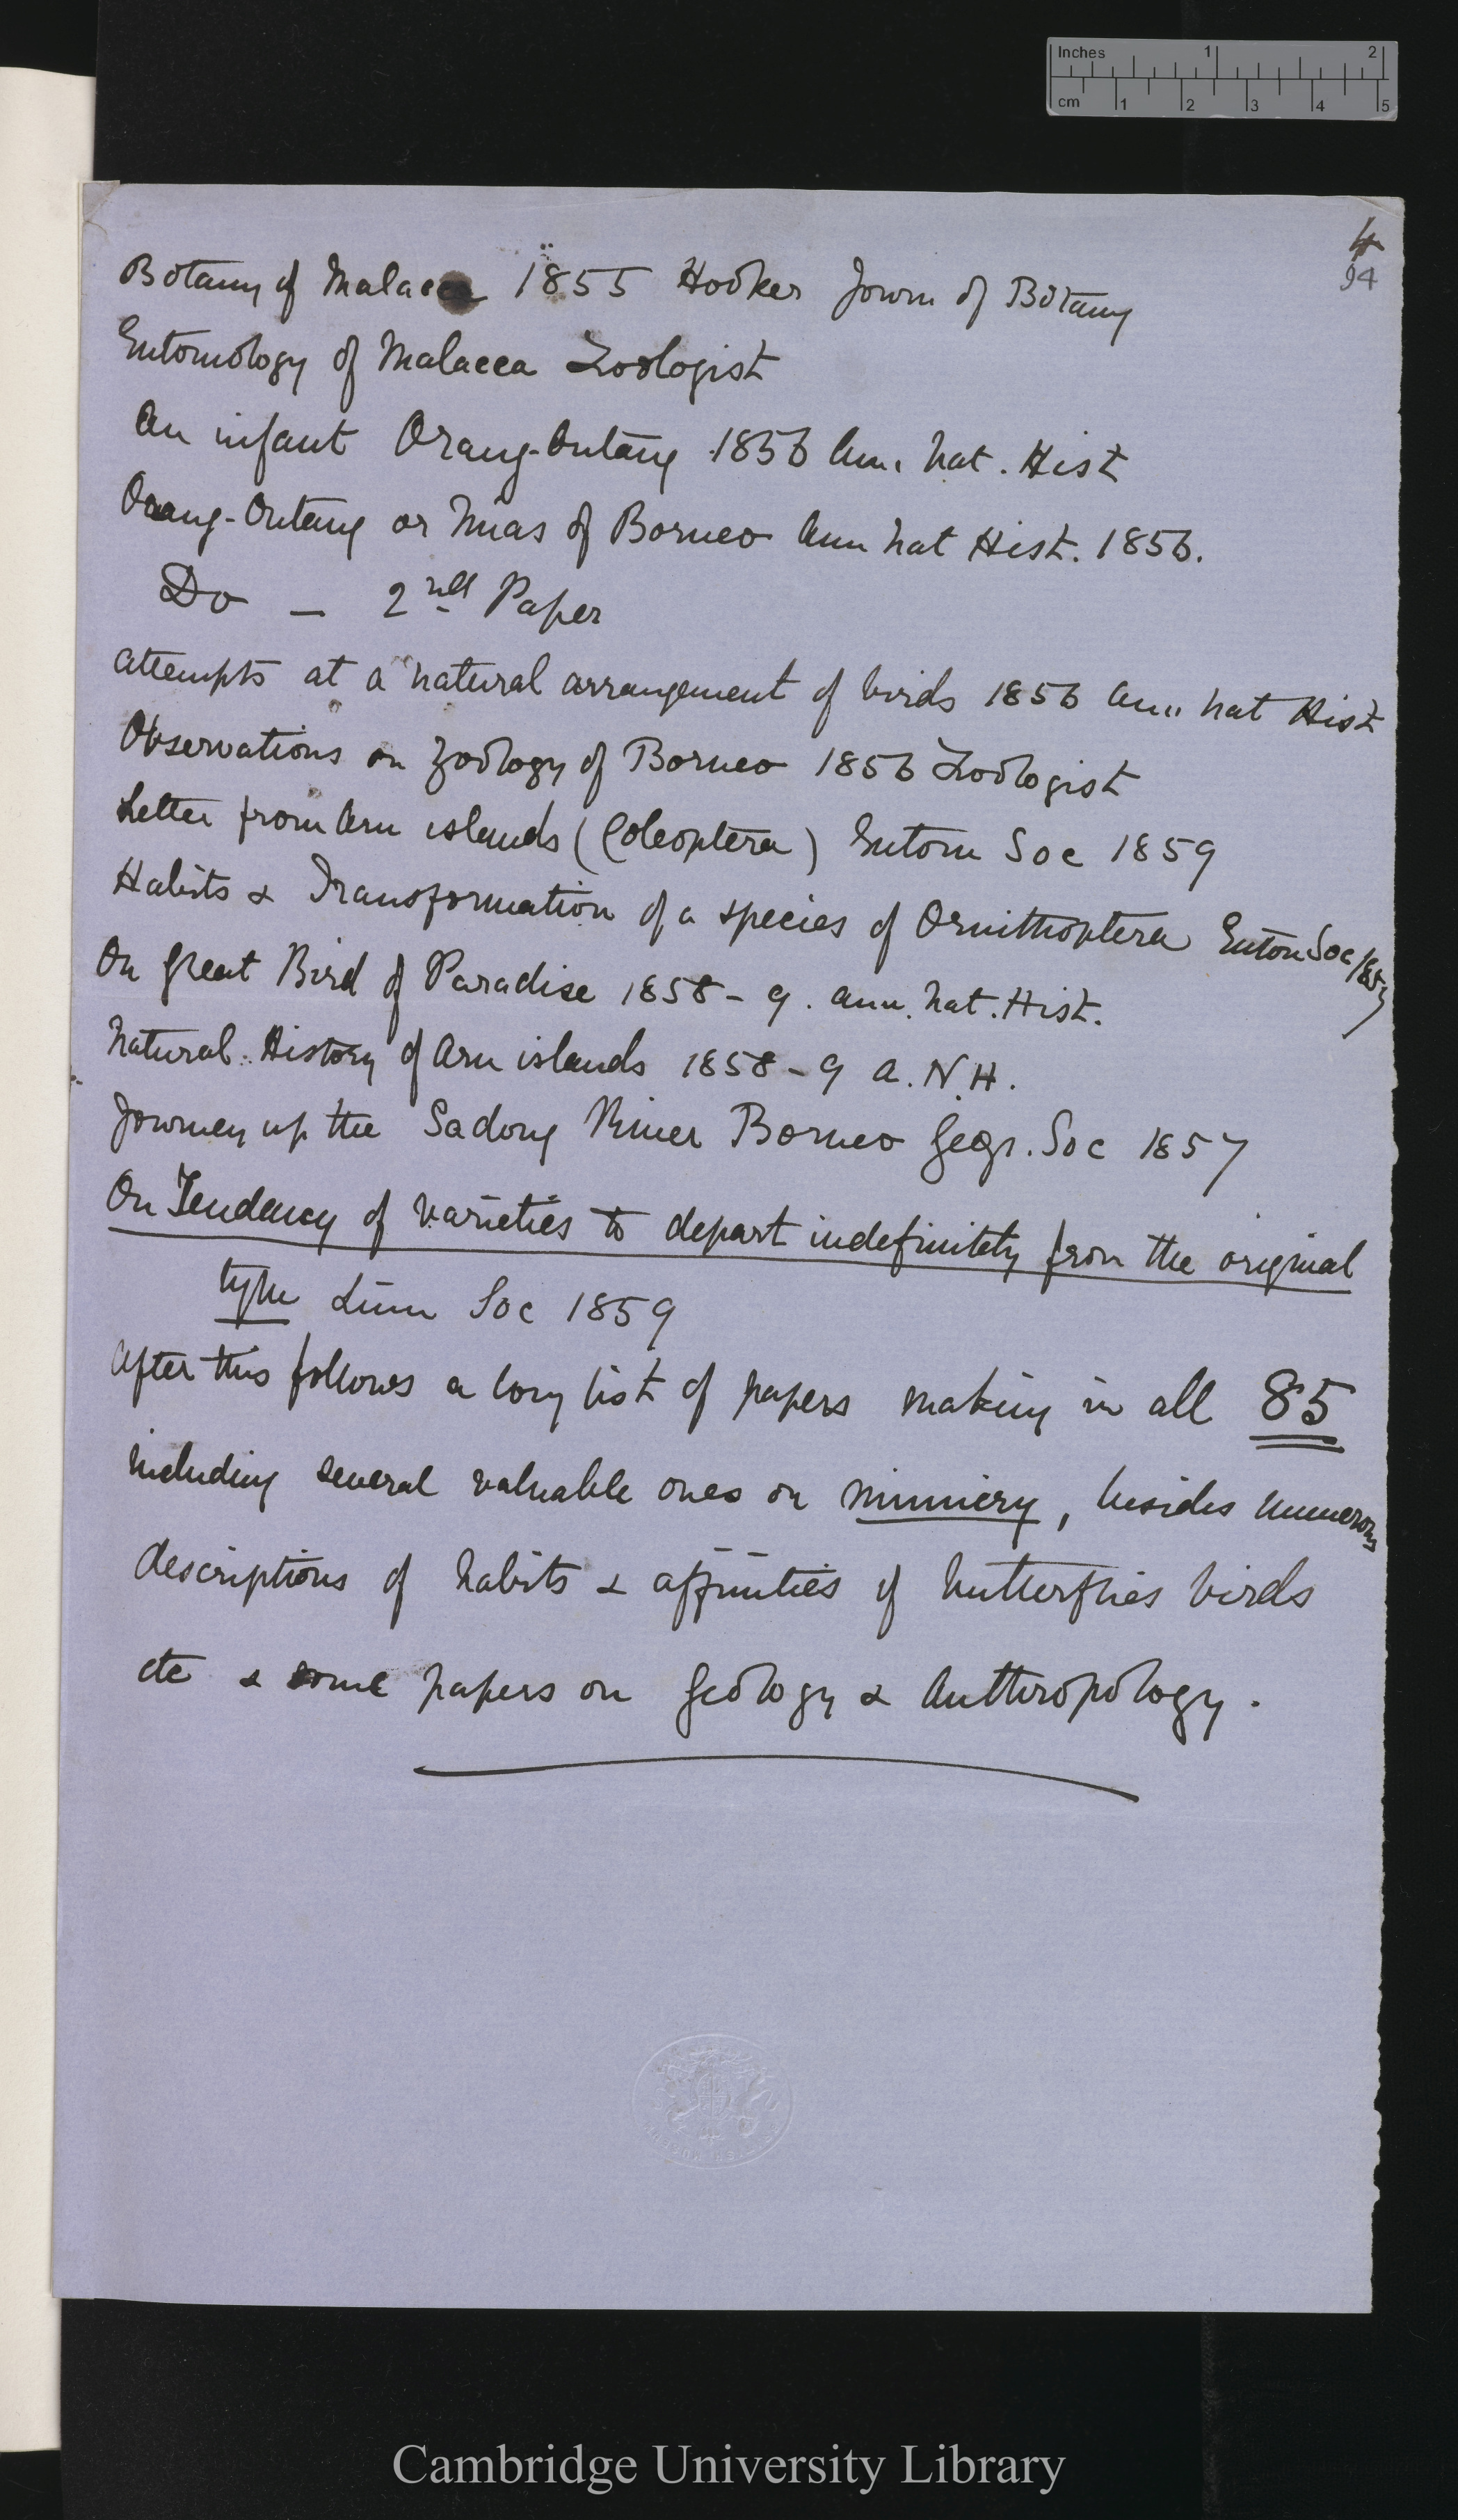 Inches 1 2
cm 1 2 3 4 5
4
94
Botany of Malacca 1855 Hooker Journ of Botany
Entomology of Malacca Zoologist
An infant Orang-Outang 1856 Ann. Nat. Hist
Orang-Outang or Mias of Borneo Ann Nat Hist. 1856.
Do — 2nd Paper
Attempts at a natural arrangement of birds 1856 Ann Nat Hist
Observations on Zoology of Borneo 1856 Zoologist
Letter from Aru islands (Coleoptera) Entom Soc 1859
Habits & Transformation of a species of Ornithoptera Entom Soc 1857
On Great Bird of Paradise 1858-9. Ann. Nat. Hist.
Natural History of Aru islands 1858-9 A.N.H.
Journey up the Sadong River Borneo Geogr. Soc 1857
On Tendency of varieties to depart indefinitely from the original
type Linn Soc 1859
After this follows a long list of papers making in all 85
including several valuable ones on mimicry, besides numerous
descriptions of habits & affinities of butterflies birds
etc & some papers on Geology & Anthropology.
Cambridge University Library